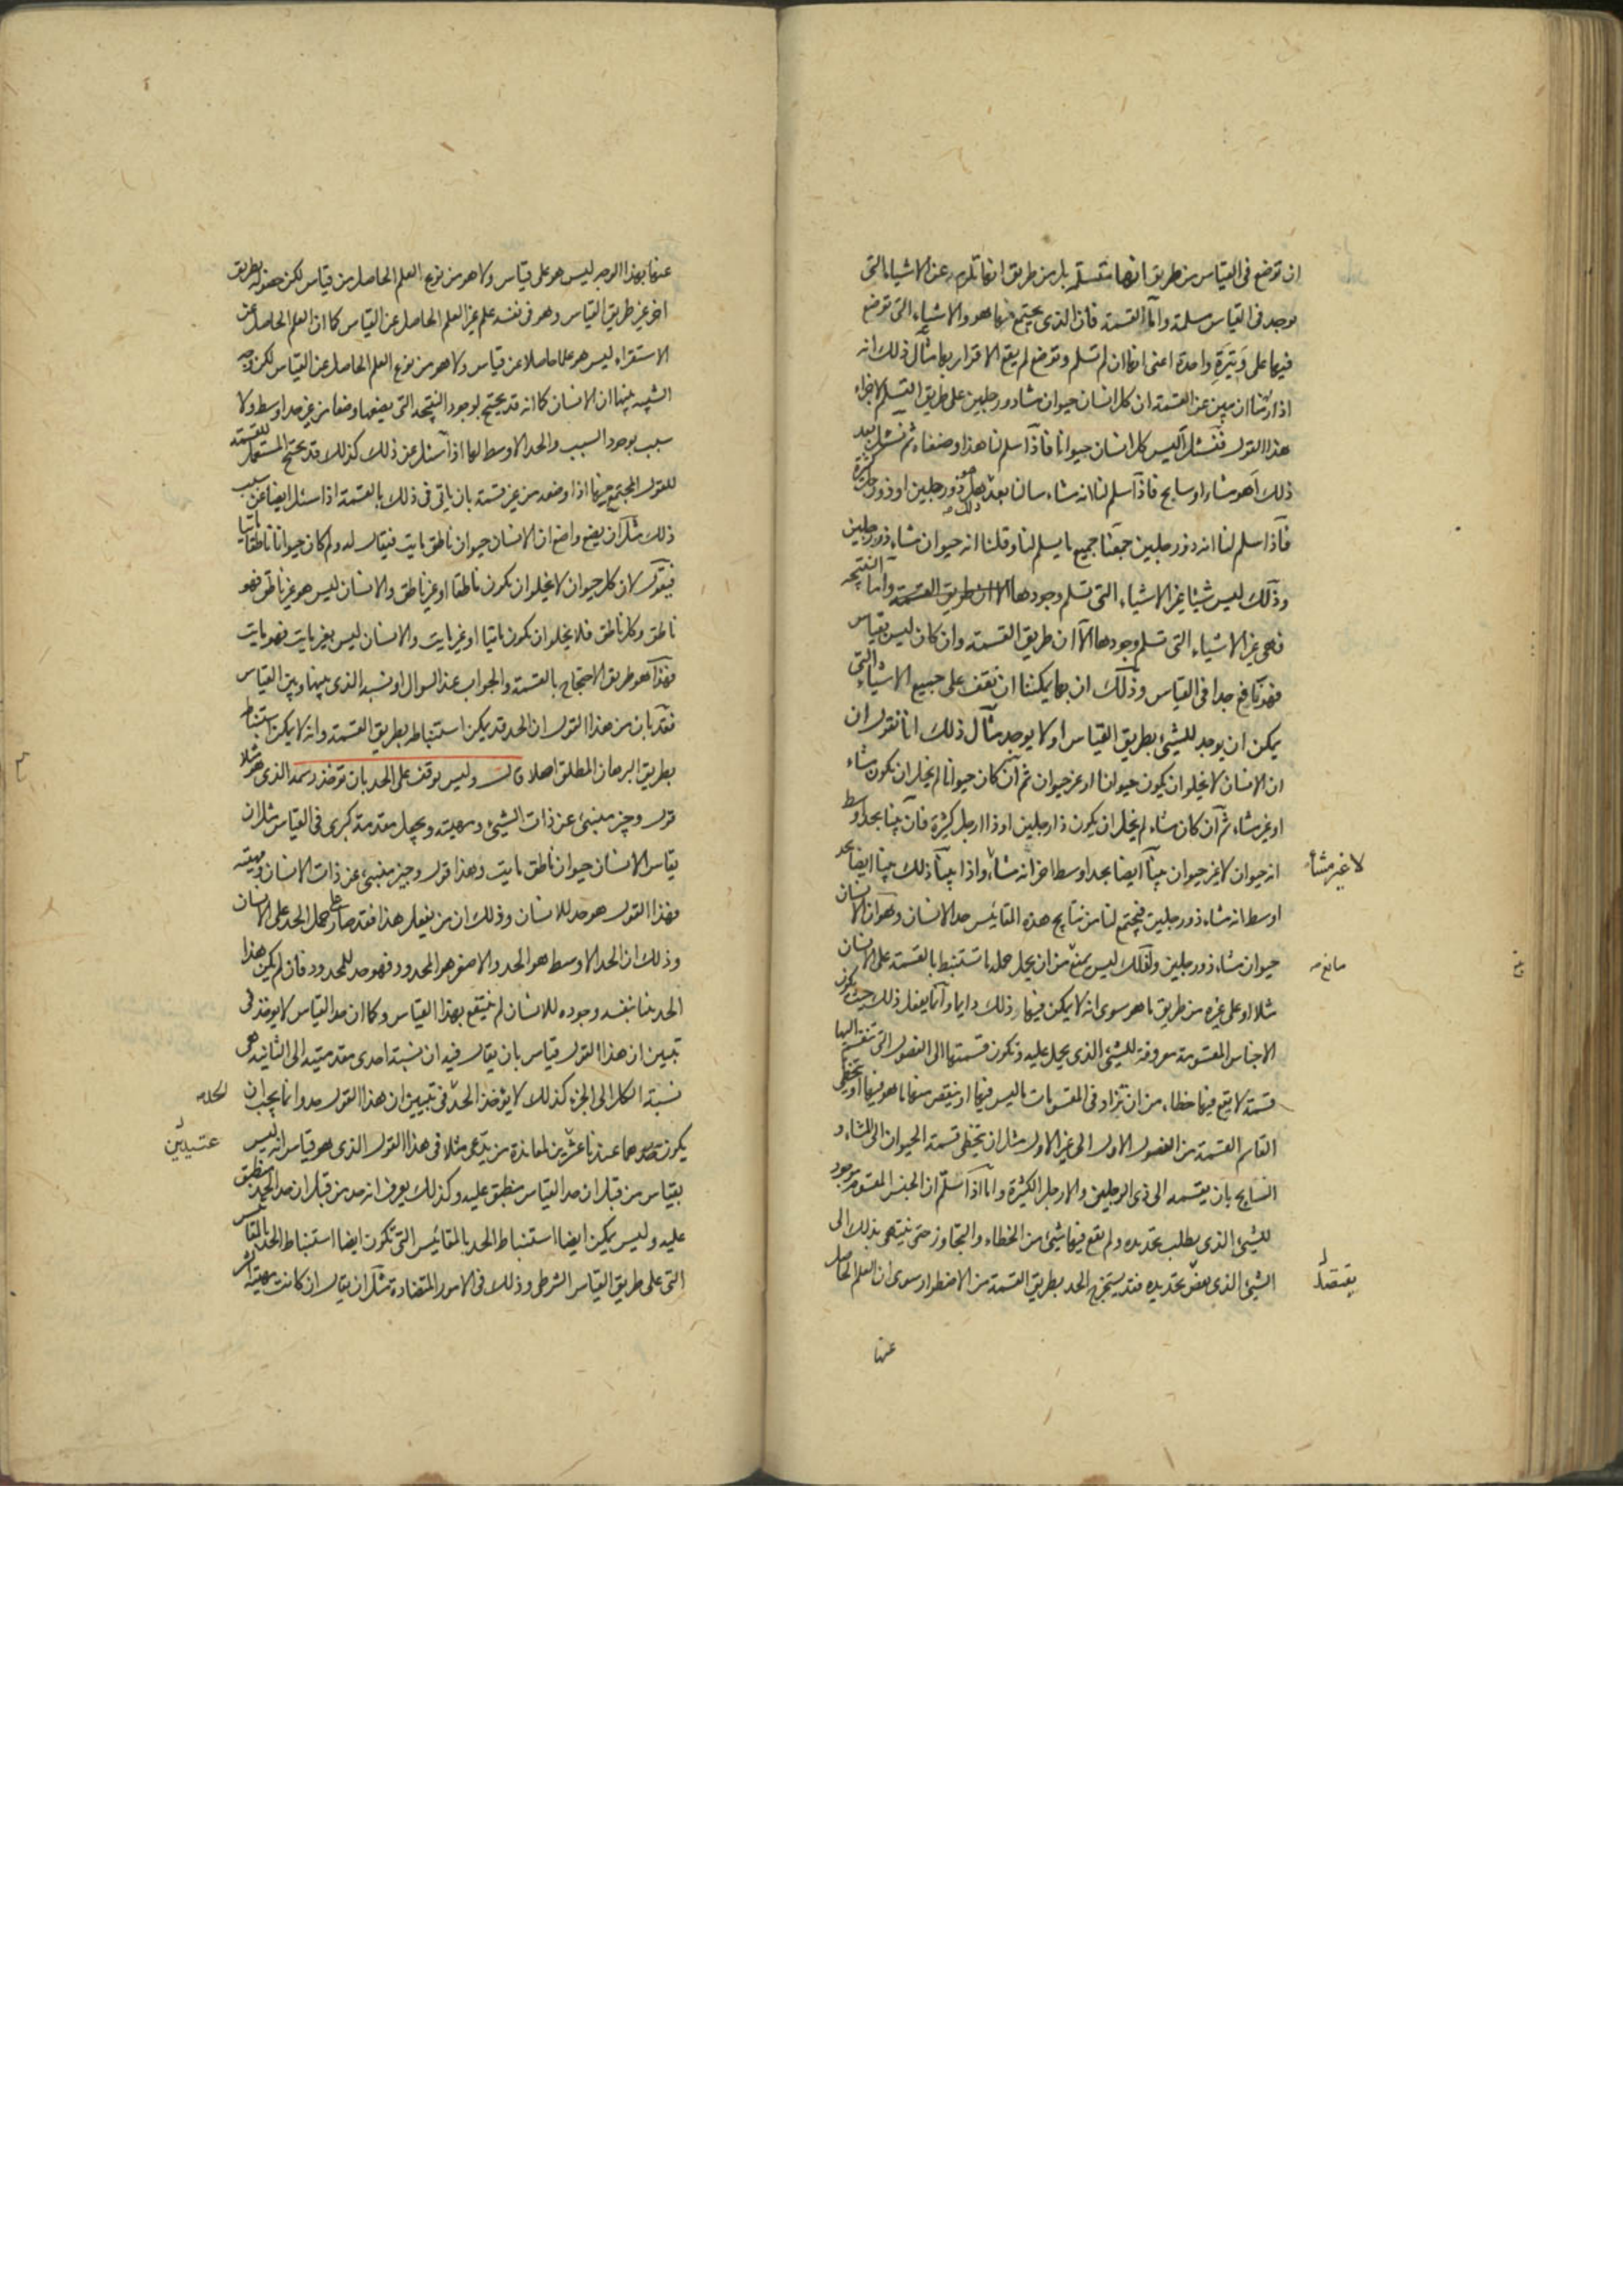 ان توضع فى القياس من طريق انها تتسلم بل من طريق انها تلزم عن الاشياء التى
توجد فى القياس مسلمة واما القسمة فان الذى يجتمع منها هو والاشياء التى توضع
فيها على وتيرة واحدة اعنى انها ان لم تسلم وتوضع لم يقع الاقرار بها مثال ذلك انه
اذا اردنا ان نبين عن القسمة ان كل انسان حيوان مشاء ذو رجلين على طريق التسلم لاجزاء
هذا القول فنسئل اليس كل انسان حيوانا فاذا سلم لنا هذا وضعناه ثم نسئل بعد
ذلك اهو مشاء او سابح فاذا سلم لنا انه مشاء سالنا بعد هل هو ذو رجلين او ذو ارجل كثيرة
فاذا سلم لنا انه ذو رجلين جمعنا جميع ما يسلم لنا وقلنا انه حيوان مشاء ذو رجلين
وذلك ليس شيئا غير الاشياء التى تسلم وجودها الا ان طريق القسمة واما النتيجة
فهى غير الاشياء التى تسلم وجودها الا ان طريق القسمة وان كان ليس بقياس
فهو نافع جدا فى القياس وذلك ان بها يمكننا ان نقف على جميع الاشياء التى
يمكن ان يوجد للشىء بطريق القياس او لا يوجد مثال ذلك انا نقول ان
ان الانسان لا يخلو ان يكون حيوانا او غير حيوان ثم ان كان حيوانا لم يخل ان يكون مشاء
او غير مشاء ثم ان كان مشاء لم يخل ان يكون ذا رجلين او ذا ارجل كثيرة فان بينا بحد اوسط
انه حيوان لا غير حيوان بينا ايضا بحد اوسط اخر انه مشاء واذا بينا ذلك بينا ايضا بحد
لا غير مشاء
اوسط انه مشاء ذو رجلين فيجتمع لنا من نتايج هذه المقائيس حد الانسان وهو ان الانسان
حيوان مشاء ذو رجلين ولذلك ليس يمنع من ان يحمل حد ما تستنبط بالقسمة على الانسان
مانع
مثلا او على غيره من طريق ما هو سوى انه لا يمكن فيها ذلك دايما وانما يفعل ذلك حيث يكون
الاجناس المقسومة معروفة للشىء الذى يحمل عليه وتكون قسمتها الى الفصول التى تنقسم اليها
قسمة لا يقع فيها خطاء من ان يزاد فى المقسومات ما ليس فيها او ينقص منها ما هو فيها او يتخطى
القاسم القسمة من الفصول الاول الى غير الاول مثل ان يتخطى قسمة الحيوان الى المشاء و
السابح بان يقسمه الى ذى الرجلين والارجل الكثيرة واما اذا تسلم ان الجنس المقسوم موجود
للشىء الذى يطلب تحديده ولم يقع فيها شىء من الخطاء والتجاوز حتى ينتهى بذلك الى
الشىء الذى تحديده فقد يستخرج الحد بطريق القسمة من الاضطرار سوى ان العلم الحاصل
يقصد
عنها
عنها بهذا الوجه ليس هو على قياس ولا هو من نوع العلم الحاصل من قياس لكن حصوله بطريق
اخر غير طريق القياس وهو فى نفسه علم غير العلم الحاصل عن القياس كما ان العلم الحاصل عن
الاستقراء ليس هو علما حاصلا عن قياس ولا هو من نوع العلم الحاصل عن القياس لكن وجه
الشبه بينهما ان الانسان كما انه قد يحتج لوجود النتيجة التى يضعها وضعا من غير حد اوسط ولا
سبب بوجود السبب والحد الاوسط لها اذا سئل عن ذلك كذلك قد يحتج المستعمل للقسمة
للقول المجتمع منها اذا وضعه من غير قسمة بان ياتى فى ذلك بالقسمة اذا سئل ايضا عن سبب
ذلك مثل ان يضع واضع ان الانسان حيوان ناطق مايت فيقال له ولم كان حيوانا ناطقا مايتا
فيقول لان كل حيوان لا يخلو ان يكون ناطقا او غير ناطق والانسان ليس هو غير ناطق فهو
ناطق وكل ناطق فلا يخلو ان يكون مايتا او غير مايت والانسان ليس بغير مايت فهو مايت
فهذا هو طريق الاحتجاج بالقسمة والجواب عند السوال او نسبه الذى بينها وبين القياس
فقد بان من هذا القول ان الحد قد يمكن استنباطه بطريق القسمة وانه لا يمكن استنباطه
بطريق البرهان المطلق اصلا قال وليس يوقف على الحد بان توخذ رسمه الذى هو مثلا
قول وجيز منبىء عن ذات الشىء ومهيته ويجعل مقدمة كبرى فى القياس مثل ان
يقاس الانسان حيوان ناطق مايت وهذا قول وجيز منبىء عن ذات الانسان ومهيته
فهذا القول هو حد للانسان وذلك ان من يفعل هذا فقد صادر على حمل الحد على الانسان
وذلك ان الحد الاوسط هو الحد والاصغر هو المحدود فهو حد للمحدود فان لم يكن هذا
الحد بينا بنفسه وجوده للانسان لم ينتفع بهذا القياس وكما ان حد القياس لا يوخذ فى
تبيين ان هذا القول قياس بان يقال فيه ان نسبة احدى مقدمتيه الى الثانية هى
نسبة الكل الى الجزء كذلك لا يؤخذ الحد فى تبيين ان هذا القول حد وانما يجب ان
يكون هما عندنا لمعاندة من يدعى مثلا فى هذا القول الذى هو قياس انه ليس
عتيدين
بقياس من قبل ان حد القياس منطبق عليه وكذلك يعرف انه حد من قبل ان حد الحد منطبق
عليه وليس يمكن ايضا استنباط الحد بالمقائيس التى تكون ايضا استنباط الحد بالمقائيس
التى على طريق القياس الشرطى وذلك فى الامور المتضادة مثل ان يقال ان كانت مهية الشر